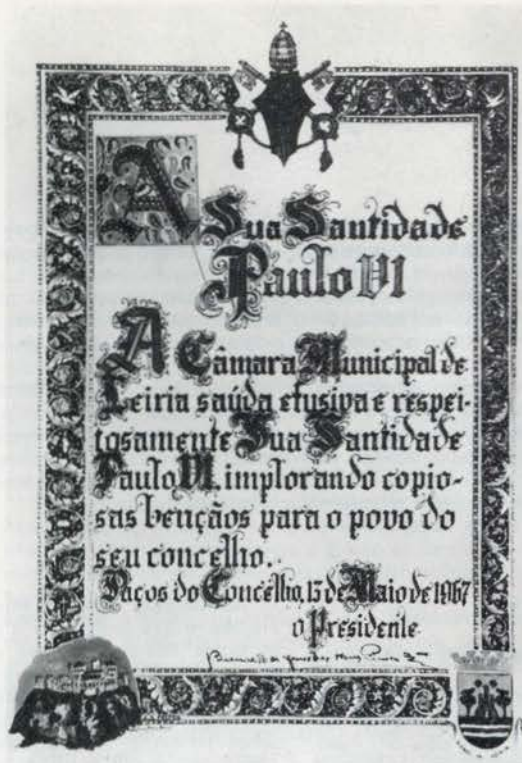 A Sua Santidade
Paulo VI
A Câmara Municipal de
Leiria saúda efusiva e respei-
tosamente Sua Santidade
Paulo VI. implorando copio-
sas bençãos para o povo do
seu concelho.
Paços do Concelho, 13 de Maio de 1967
o Presidente